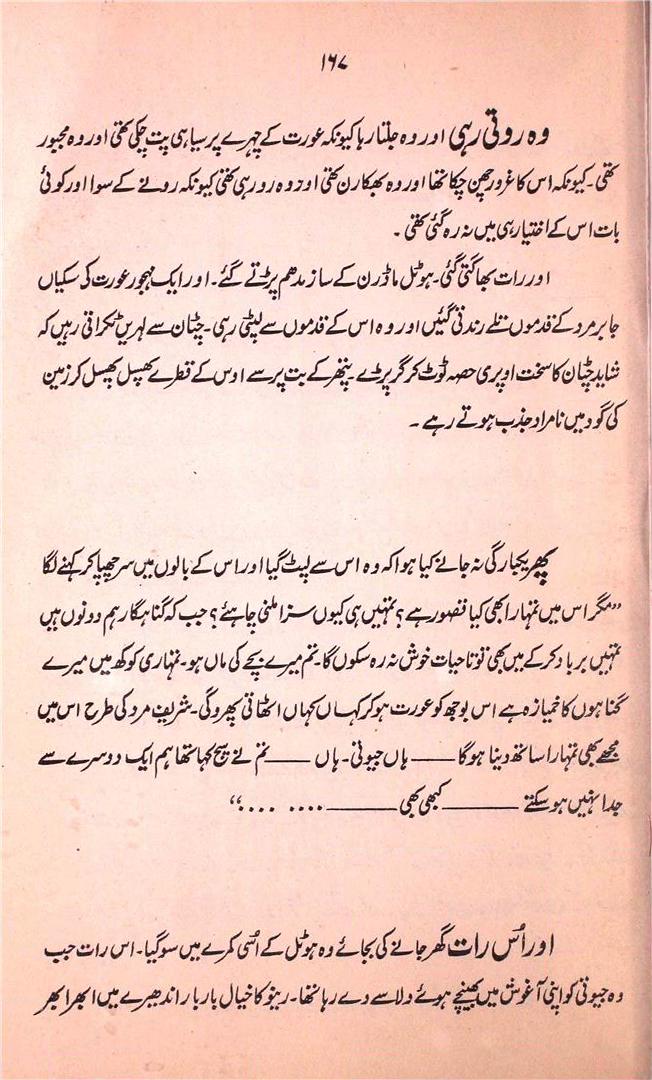 ۱۶۷
وہ روتی رہی اور وہ جلتا رہا کیونکہ عورت کے چہرے پر سیاہی پت چکی تھی اور وہ مجبور
تھی۔ کیونکہ اس کا غرور چھن چکا تھا اور وہ بھکارن تھی اور وہ رو رہی تھی کیونکہ رونے کے سوا اور کوئی
بات اس کے اختیار ہی میں نہ رہ گئی تھی ۔
اور رات بھاگتی گئی۔ ہوٹل ماڈرن کے ساز مدھم پڑتے گئے۔ اور ایک مہجور عورت کی سسکیاں
جابر مرد کے قدموں تلے رندتی گئیں اور وہ اس کے قدموں سے لپٹی رہی۔ چٹان سے لہریں ٹکراتی رہیں کہ
شاید چٹان کا سخت اوپری حصہ ٹوٹ کر گر پڑے۔ پتھر کے بت پر سے اوس کے قطرے پھسل پھسل کر زمین
کی گود میں نامراد جذب ہوتے رہے ۔
پھر یکبارگی نہ جانے کیا ہوا کہ وہ اس سے لپٹ گیا اور اس کے بالوں میں سر چھپا کر کہنے لگا
”مگر اس میں تمہارا بھی کیا قصور ہے؟ تمہیں ہی کیوں سزا ملنی چاہئے؟ جب کہ گناہگار ہم دونوں ہیں
تمہیں برباد کر کے میں بھی تو تاحیات خوش نہ رہ سکوں گا۔ تم میرے بچے کی ماں ہو۔ تمہاری کوکھ میں میرے
گناہوں کا خمیازہ ہے اس بوجھ کو عورت ہو کر کہاں کہاں اٹھاتی پھرو گی۔ شریف مرد کی طرح اس میں
مجھے بھی تمہارا ساتھ دینا ہوگا ——— ہاں جیوتی۔ ہاں ——— تم نے سچ کہا تھا ہم ایک دوسرے سے
جدا نہیں ہو سکتے ——— کبھی بھی ——— .... ....“
اور اُس رات گھر جانے کی بجائے وہ ہوٹل کے اُسی کمرے میں سو گیا۔ اس رات جب
وہ جیوتی کو اپنی آغوش میں بھینچے ہوئے دلاسے دے رہا تھا۔ رینو کا خیال بار بار اندھیرے میں ابھر ابھر